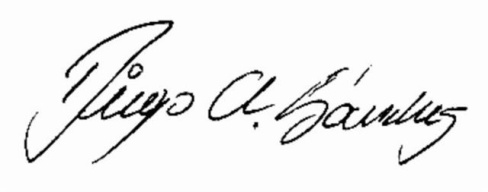 Diego A. Sánchez